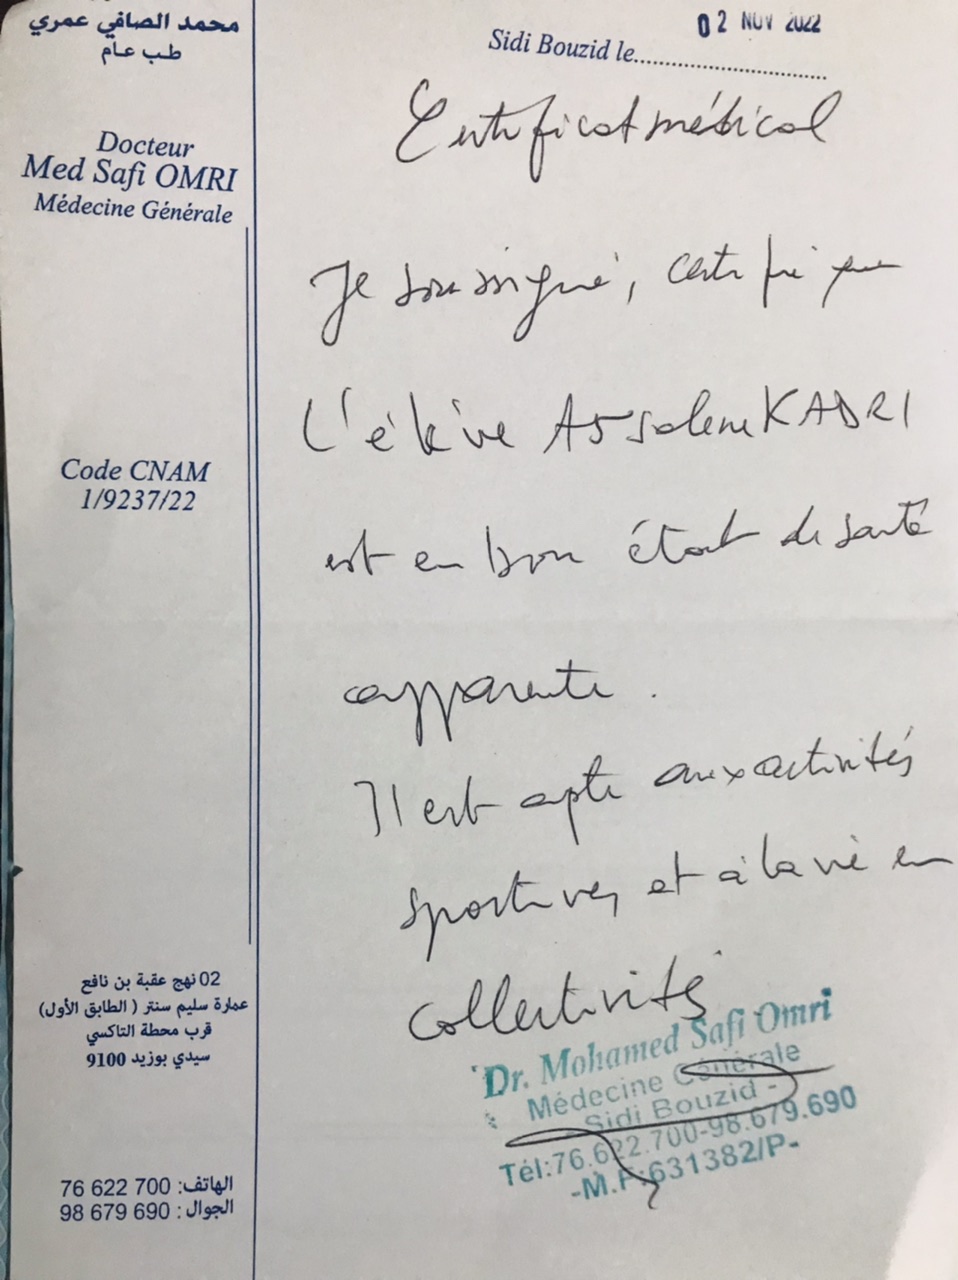 محمد الصافي عمري
طب عام
Docteur
Med Safi OMRI
Médecine Générale
Code CNAM
1/9237/22
02 نهج عقبة بن نافع
عمارة سليم سنتر ( الطابق الأول)
قرب محطة التاكسي
سيدي بوزيد 9100
الهاتف: 76 622 700
الجوال : 98 679 690
02 NOV 2022
Sidi Bouzid le..............................
Certificat médical
Je soussigné, certifie que
L'élève Assalene KADRI
est en bon état de santé
apparente.
Il est apte aux activités
sportives et à la vie en
collectivités
Dr. Mohamed Safi Omri
Médecine Générale
Sidi Bouzid -
Tél:76.622.700-98.679.690
-M.F:631382/P-